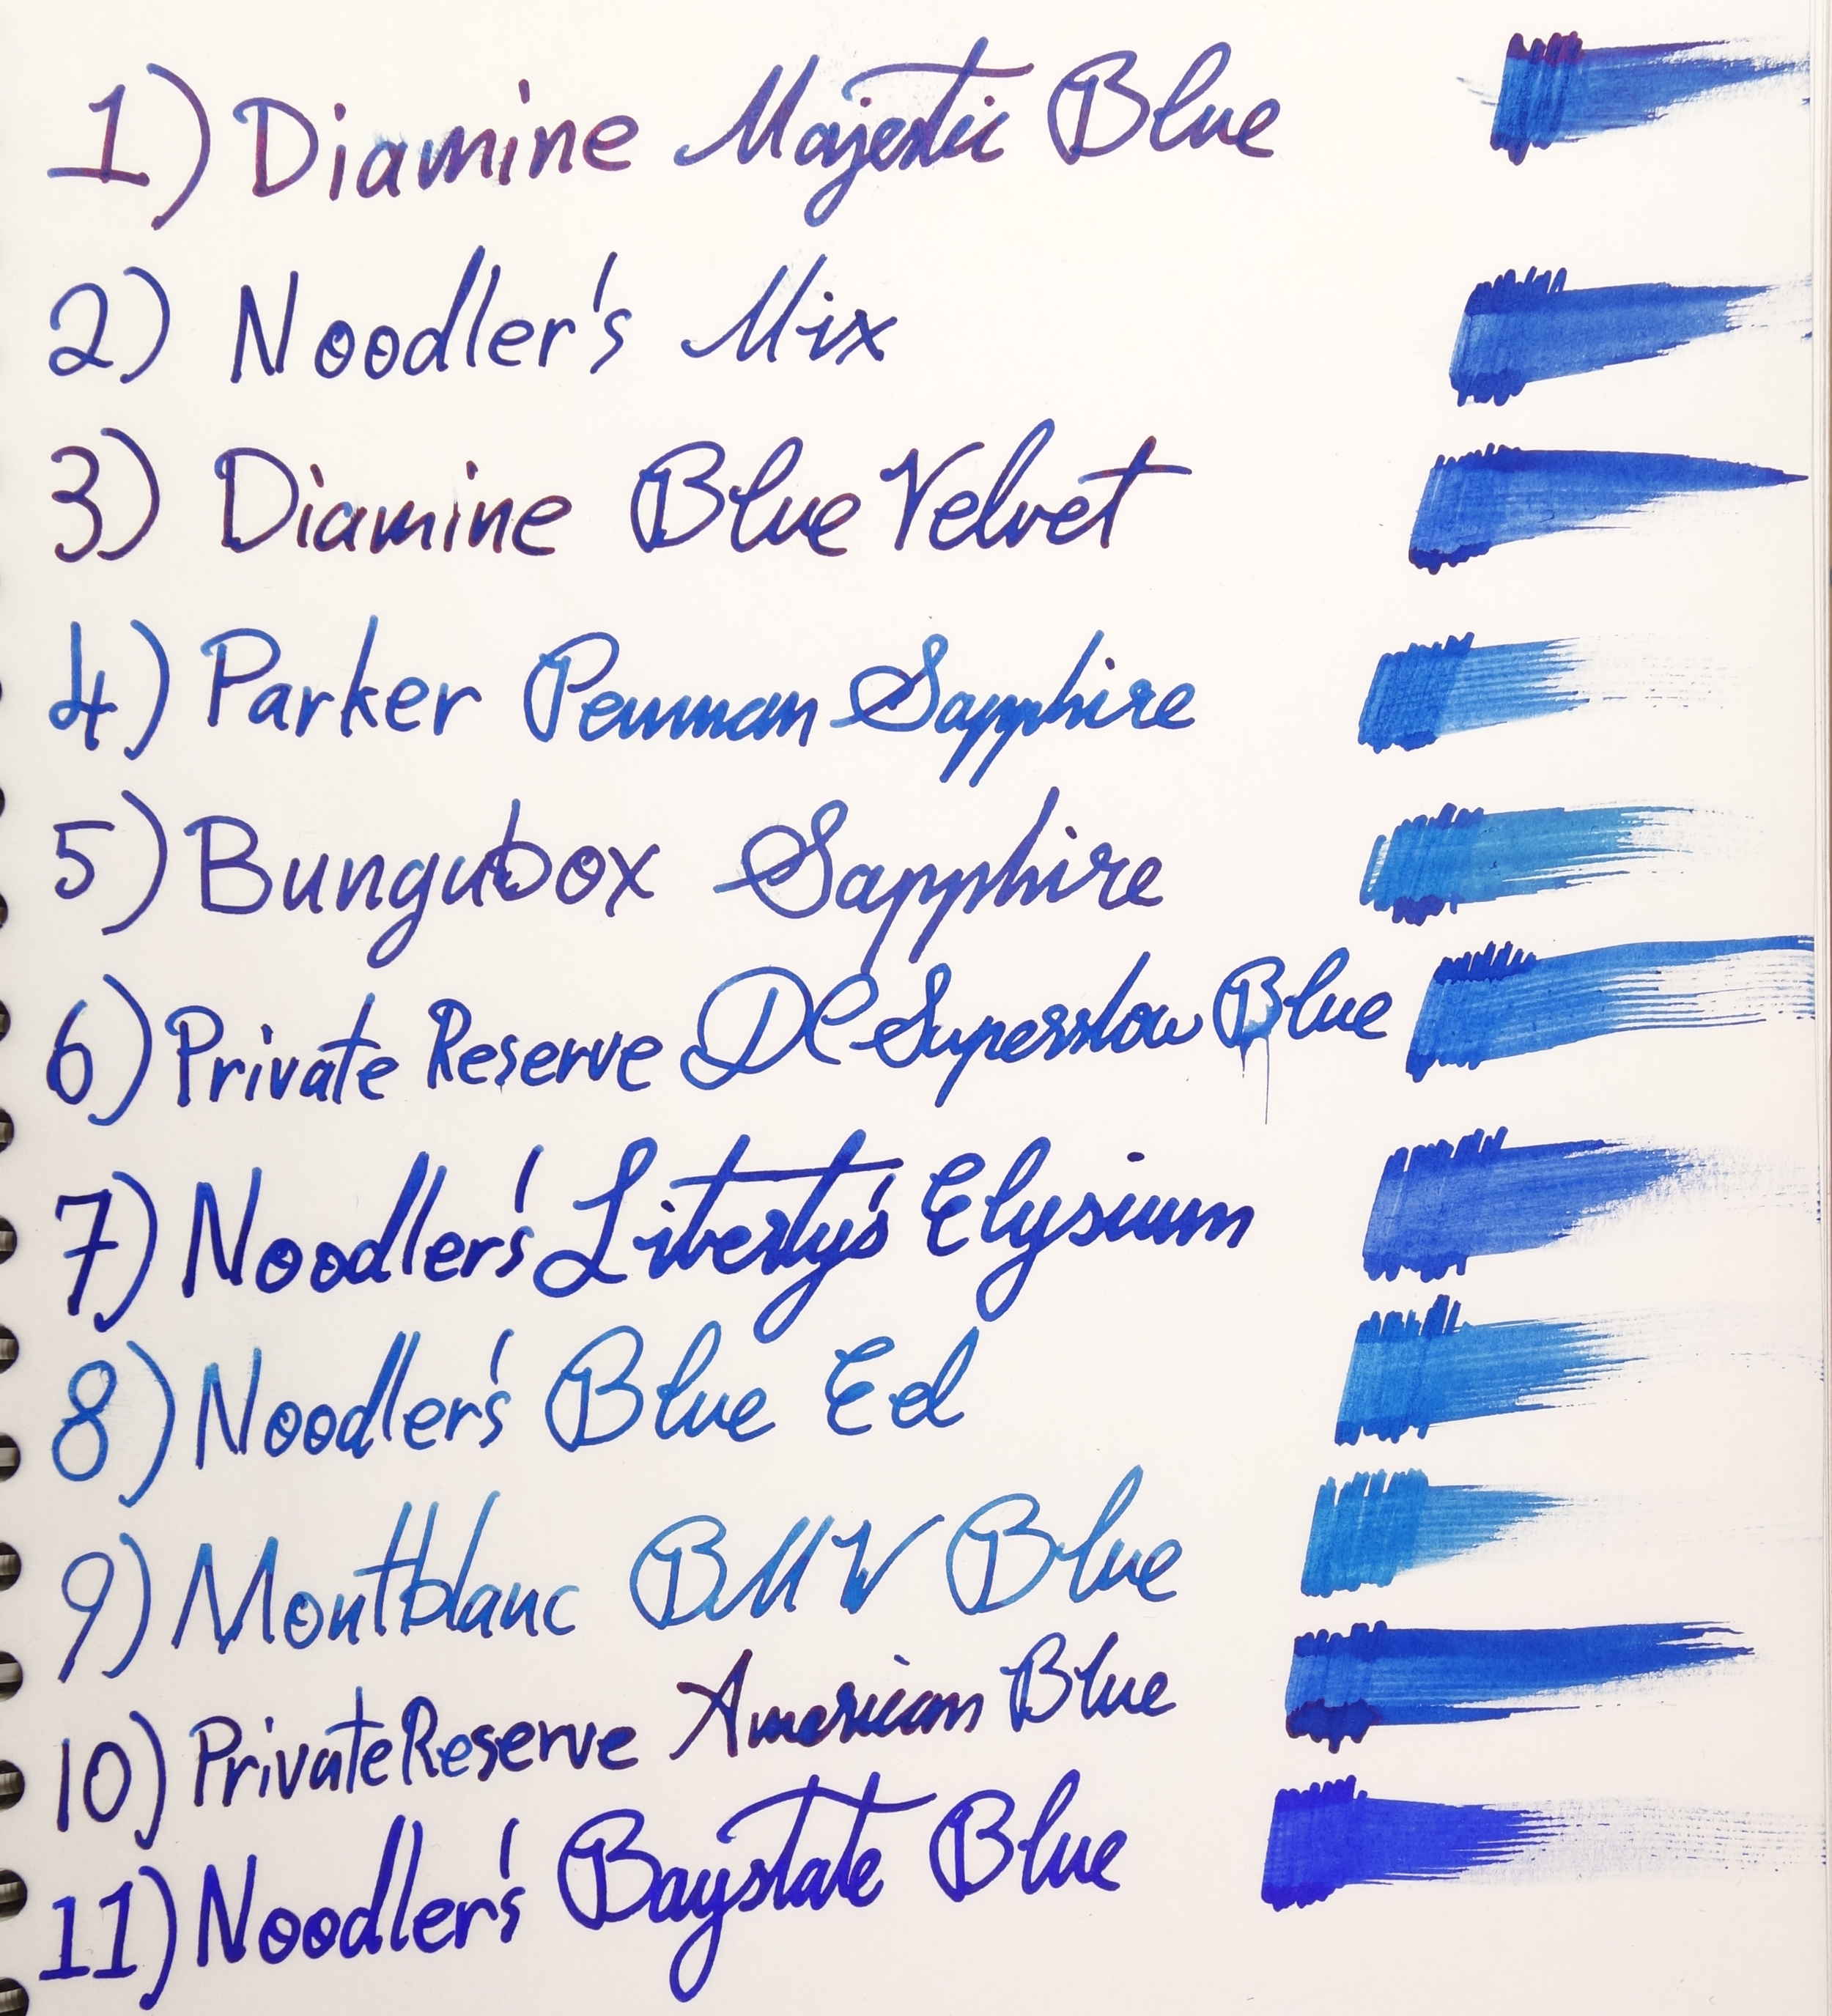 1) Diamine Majestic Blue
2) Noodler's Mix
3) Diamine Blue Velvet
4) Parker Penman Sapphire
5) Bungubox Sapphire
6) Private Reserve DC Supershow Blue
7) Noodler's Liberty's Elysium
8) Noodler's Blue Eel
9) Montblanc BMW Blue
10) Private Reserve American Blue
11) Noodler's Baystate Blue